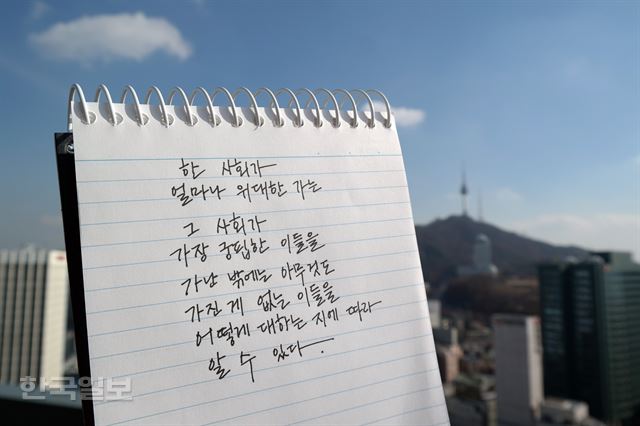 한 사회가
얼마나 위대한 가는
그 사회가
가장 궁핍한 이들을
가난 밖에는 아무것도
가진 게 없는 이들을
어떻게 대하는 지에 따라
알 수 있다.
한국일보